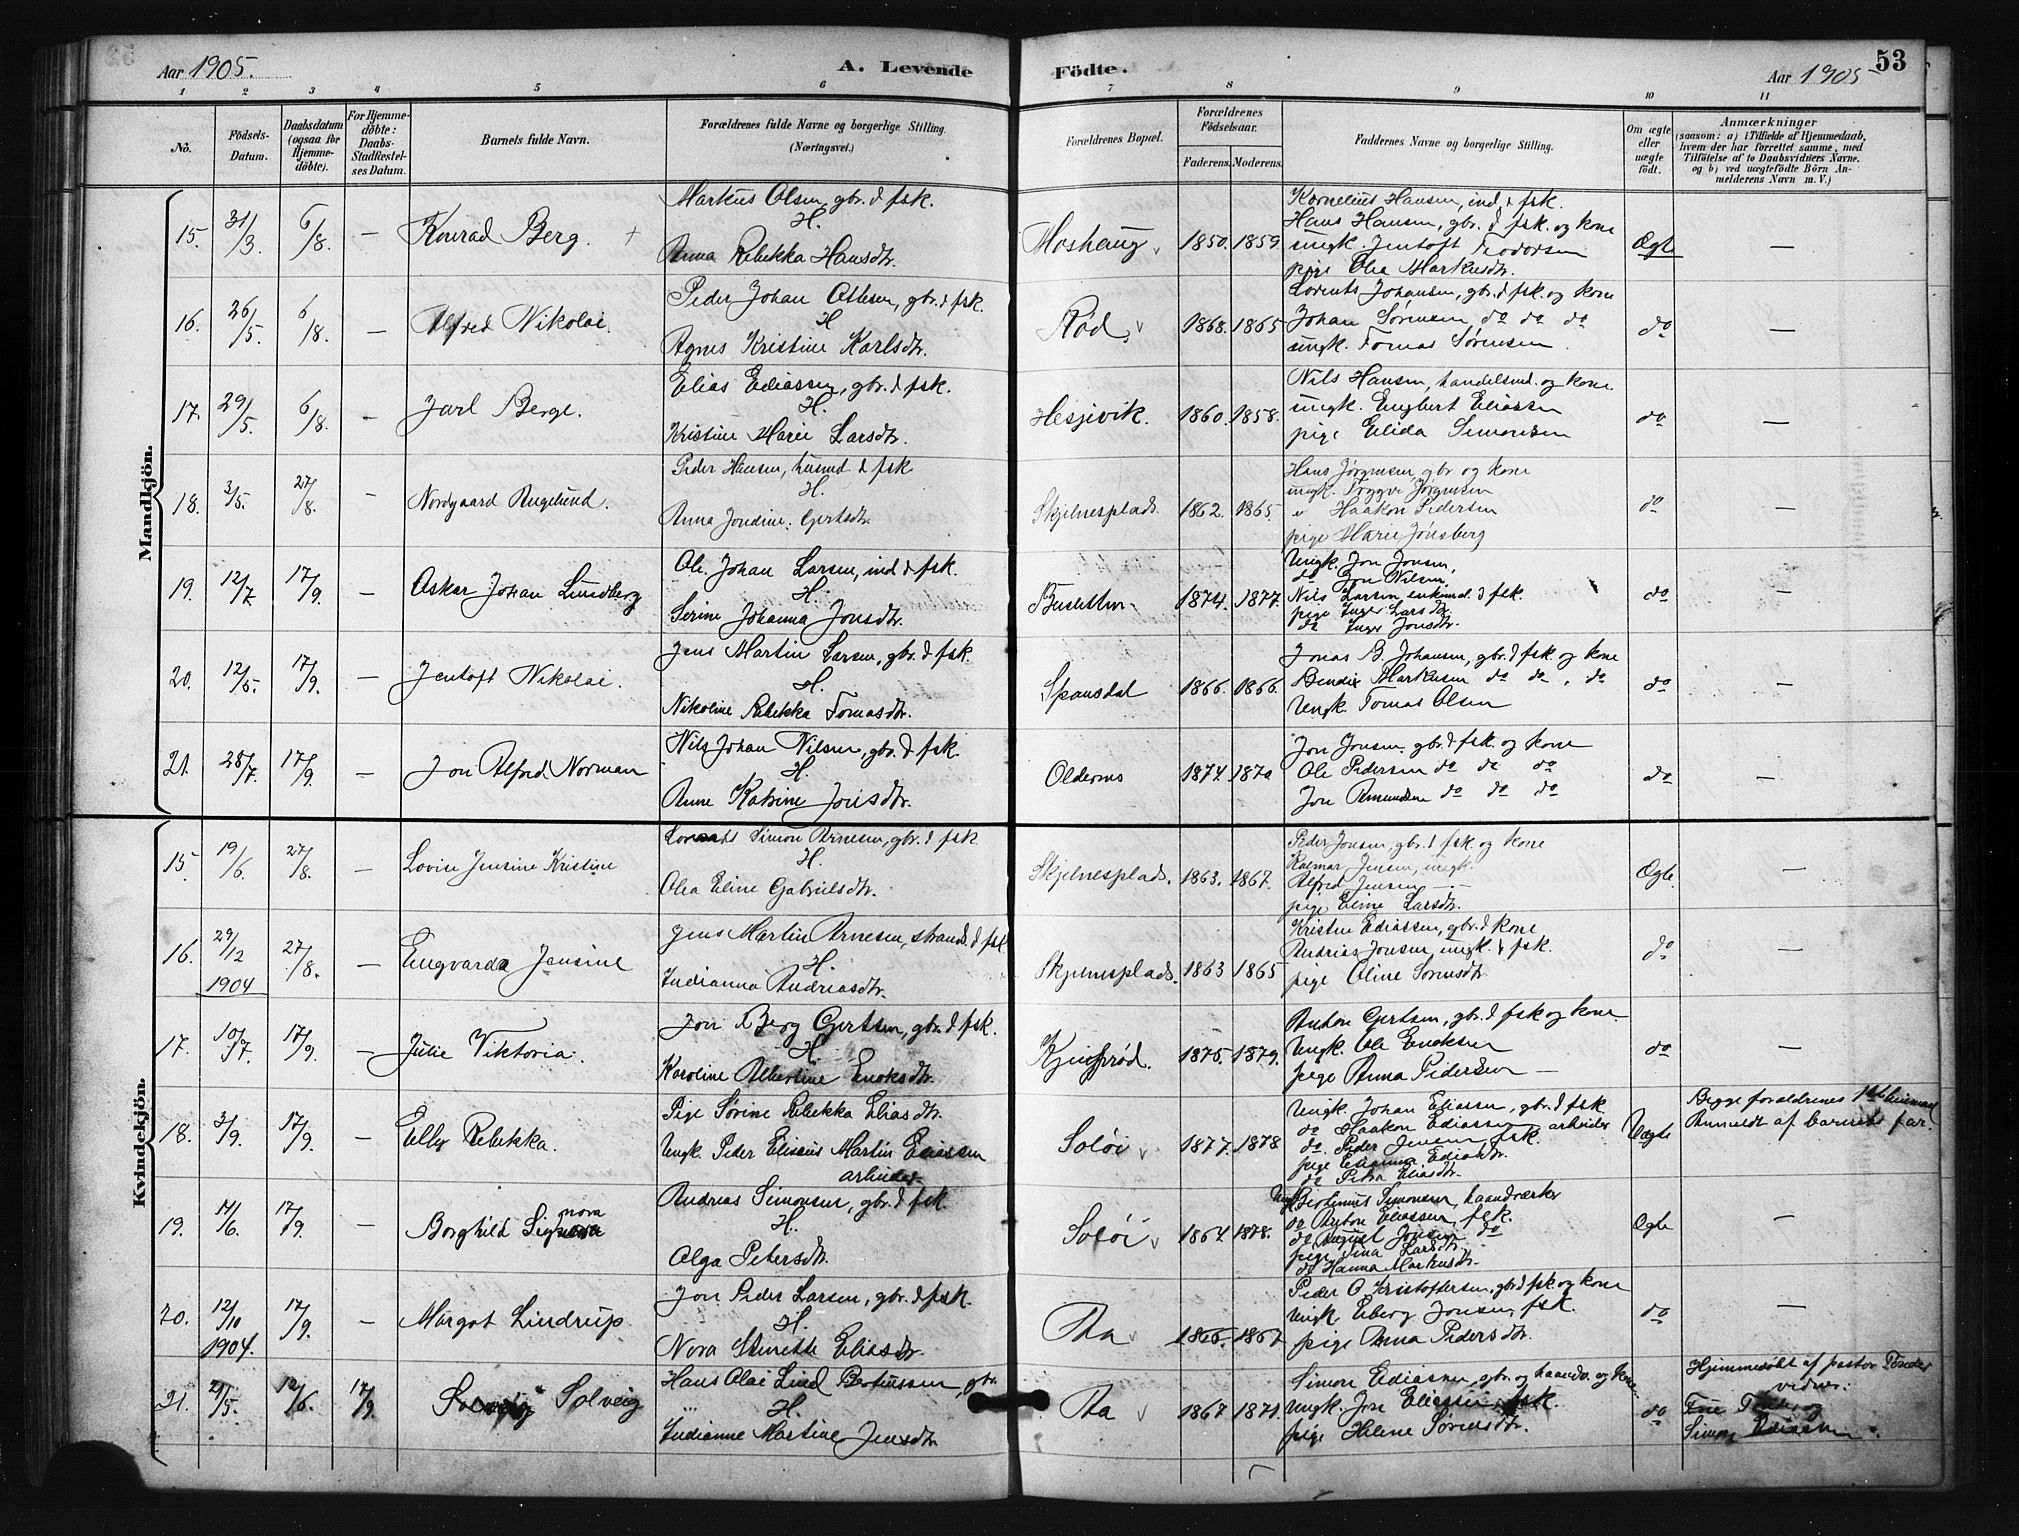 Aar 1905. A. Levende Födte. Aar 1905 53
1 2 3 4 5 6 7 8 9 10 11
No. Födsels-Datum. Daabsdatum (ogsaa for Hjemmedöbte). For Hjemmedöbte: Daabs-Stadfæstelses Datum. Barnets fulde Navn. Forældrenes fulde Navne og borgerlige Stilling. (Næringsvei.) Forældrenes Bopæl. Forældrenes Födselsaar. Faderens. Moderens. Faddernes Navne og borgerlige Stilling. Om ægte eller uægte födt. Anmærkninger (saasom: a) i Tilfælde af Hjemmedaab, hvem der har forrettet samme, med Tilföielse af to Daabsvidners Navne, og b) ved uægtefödte Börn Anmelderens Navn m. V.)
Mandkjön.
15. 31/3. 6/8. — Konrad Berg. +
Markus Olsen, gbr. & fsk.
H.
Anna Rebekka Hansdtr.
Moshaug 1850. 1859.
Kornelius Hansen, ind. & fsk.
Hans Hansen, gbr. & fsk. og kone
ungk. Jentoft Teodorsen
pige Olea Markusdtr.
Ægte —
16. 26/5. 6/8. — Alfred Nikolai.
Peder Johan Ottesen, gbr. & fsk.
H
Agnes Kristine Karlsdtr.
Rød 1868. 1865
Lorents Johansen, gbr. & fsk. og kone
Johan Sørensen do do do
ungk. Tomas Sørensen.
do —
17. 29/5. 6/8. — Jarl Berge.
Elias Ediassen, gbr. & fsk.
H.
Kristine Marie Larsdtr.
Hesjevik. 1860. 1858.
Nils Hansen, handelsmd. og kone
ungk. Engbert Eliassen
pige Elida Simonsen
do —
18. 3/5. 27/8. — Nordgaard Angelund.
Peder Hansen, husmd & fsk
H.
Anna Jondine Gertsdtr.
Skjelnesplads. 1862. 1865.
Hans Jørgensen, gbr og kone
ungk. Tryggve Jørgensen
" Haakon Pedersen
pige Marie Jønsberg
do —
19. 12/7. 17/9. — Oskar Johan Lundberg
Ole Johan Larsen, ind & fsk.
H.
Serine Johanna Jonsdtr.
1874. 1877.
Ungk. Jon Jonsen,
do Jon Nilsen
Nils Larsen enkemd. & fsk.
pige Inger Larsdtr.
do Inger Jonsdtr.
do —
20. 12/5. 17/9. — Jentoft Nikolai.
Jens Martin Larsen, gbr. & fsk.
H.
Nikoline Rebekka Tomasdtr.
Spansdal 1866. 1866.
Jonas B. Johansen, gbr. & fsk. og kone
Bendix Markusen do do do
Ungk. Tomas Olsen
do —
21. 28/7. 17/9. — Jon Alfred Norman
Nils Johan Nilsen, gbr. & fsk.
H.
Anne Katrine Jonsdtr.
Oldernes 1874. 1870
Jon Jonsen, gbr. & fsk. og kone
Ole Pedersen do do do
Jon Amundsen do do do
do —
Kvindekjön.
15. 19/6. 27/8. — Lovise Jensine Kristine
Lorents Simon Arnesen, gbr. & fsk
H
Olea Eline Gabrielsdtr.
Skjelnesplads. 1863. 1867.
Peder Jonsen, gbr. & fsk. og kone
Kalmar Jensen, ungk.
Alfred Jensen —
pige Eline Larsdtr.
Ægte. —
16. 29/12 1904 27/8. — Engvarda Jensine
Jens Martin Arnesen, strands. & fsk
H.
Indianna Andriasdtr.
Skjelnesplads. 1863 1865
Kristen Ediassen, gbr. & kone
Andrias Jonsen, ungk. & fsk.
pige Oline Sørensdtr.
do —
17. 10/7. 17/9. — Julie Viktoria.
Jon Berg Gertsen, gbr. & fsk.
H.
Karoline Albertine Enoksdtr.
1875. 1879.
Anton Gertsen, gbr. & fsk og kone.
Ungk. Ole Enoksen
pige Anna Pedersen —
do —
18. 3/9. 17/9. — Elly Rebekka.
Pige Sørine Rebekka Eliasdtr.
Ungk. Peder Eliseus Martin Eliassen
arbeider
Soløi 1877. 1878
Ungk. Johan Eliassen, gbr. & fsk.
do Haakon Ediassen arbeider
do. Peder Jensen, fsk.
pige Edianna Ediasdtr.
do Petra Eliasdtr.
Uægte
Begge forældrenes 1ste leiermaal
Anmeldt af barnets far.
19. 14/6. 17/9. — Borghild Signora nora
Andreas Simonsen, gbr. & fsk.
H.
Olga Petersdtr.
Soløi 1864. 1878.
Ungk. Bertinius Simonsen, haandværker
do Anton Eliassen, fsk.
do August Jonsen do
pige Sina Larsdtr.
do Hanna Markusdtr.
Ægte —
20. 12/10 1904. 17/9. — Margot Lindrup.
Jon Peder Larsen, gbr. & fsk.
H.
Nora Sturette Eliasdtr.
Aa 1866. 1867
Peder O Kristoffersen, gbr. & fsk og kone
Ungk Eberg Jonsen, fsk.
pige Anna Pedersdtr.
do —
21. 2/5. 12/6. 17/9. Solveig Solveig
Hans Olai Lind Bertinussen, gbr.
H.
Indianne Martine Jensdtr
Aa 1867 1871.
Simon Ediassen, gbr. og haandv. og kone
Ungk. Jon Eliassen, fsk.
pige Helene Sørensdtr.
do
Hjemmedøbt af pastor Tønder
vidner:
Frue og
Simon Ediassen.